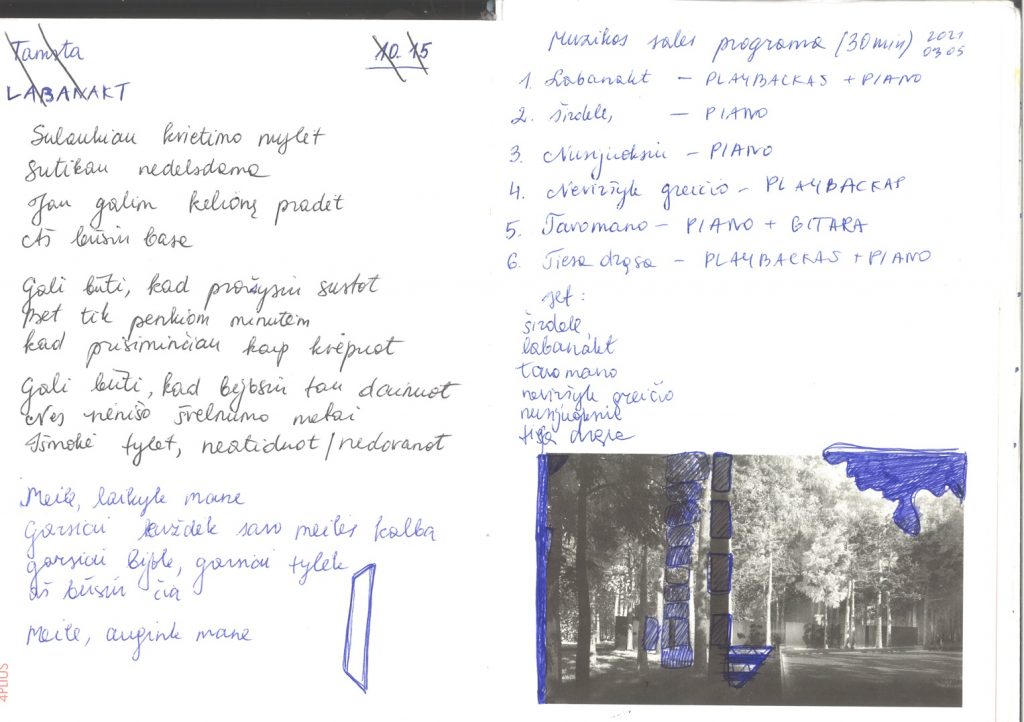 Tamsta
10.15
LABANAKT
Sulaukiau kvietimo mylėt
Sutikau nedelsdama
Jau galim kelionę pradėt
Aš būsiu basa
Gali būti, kad prašysiu sustot
Bet tik penkiom minutėm
kad prisiminčiau kaip kvėpuot
Gali būti, kad bijosiu tau dainuot
Nes nenišo švelnumo metai
Išmokė tylėt, neatiduot/nedovanot
Meile, laikyk mane
Garsiai kuždėk savo meilės kalba
garsiai bijok, garsiai tylėk
aš būsiu čia
Meile, augink mane
4PLIUS
Muzikos salės programa (30min) 2021 03 05
1. Labanakt – PLAYBACKAS + PIANO
2. Širdele, – PIANO
3. Nusijuoksiu – PIANO
4. Neviršyk greičio – PLAYBACKAS
5. Tavomano – PIANO + GITARA
6. Tiesa drąsa – PLAYBACKAS + PIANO
set:
širdele,
labanakt
tavomano
neviršyk greičio
tiesa drąsa